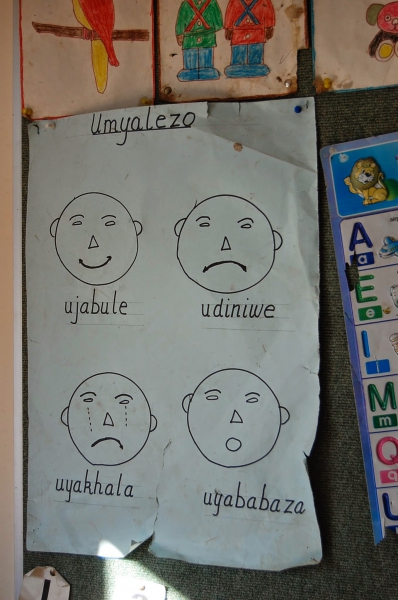 Umyalezo
ujabule
udiniwe
uyakhala
uyababaza
A
a
E
e
I
i
M
m
Q
q
U